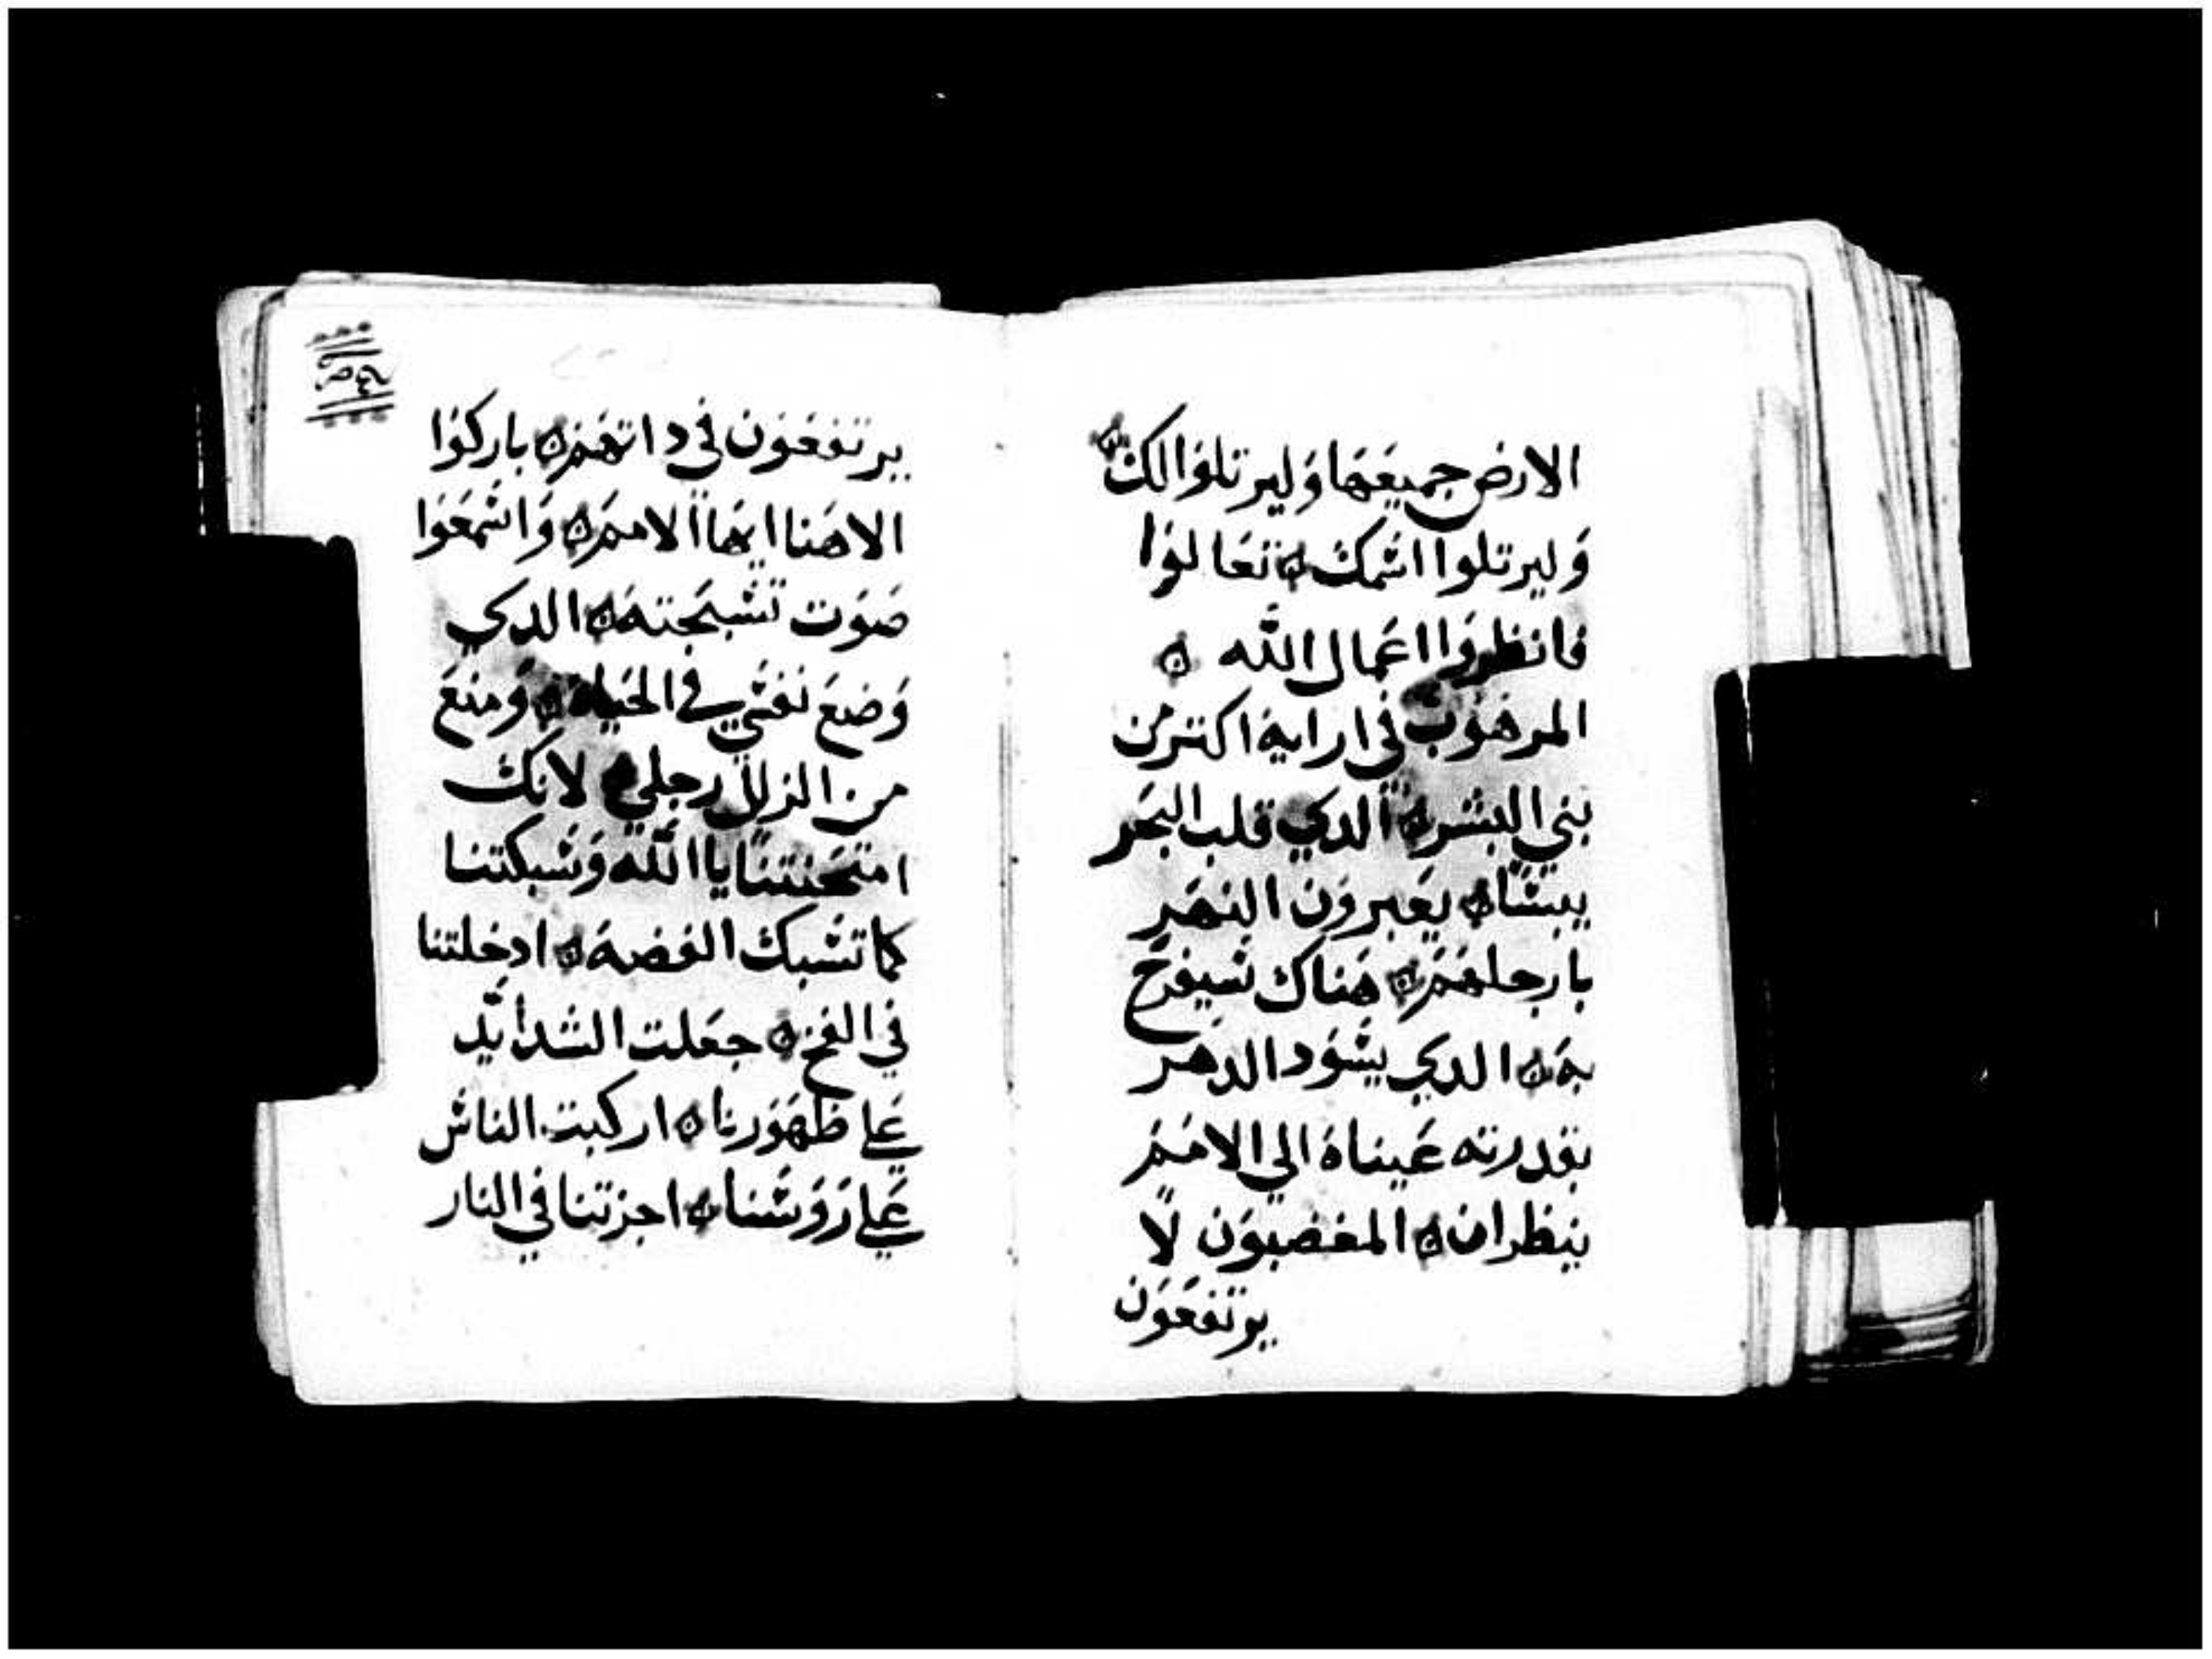 الارض جميعها وليرتلوا لك
وليرتلوا اسمك تعالوا
فانظروا اعمال الله
المرهوب في ارايه اكتر من
بني البشر الدي قلب البحر
يبسا يعبرون النهر
بارجلهم هناك سيفرح
به الدي يسود الدهر
بقدرته عيناه الي الامم
ينظران المغضبون لا
يرتفعون
يرتفعون في داتهم باركوا
الاهنا ايها الامم واسمعوا
صوت تسبحته الدي
وضع نفسي في الحياه ومنع
من الزلل رجلي لانك
امتحنتنا يا الله وسبكتنا
كما تسبك الفضه ادخلتنا
في الفخ جعلت الشدايد
علي ظهورنا اركبت الناس
علي رووسنا اجزتنا في النار